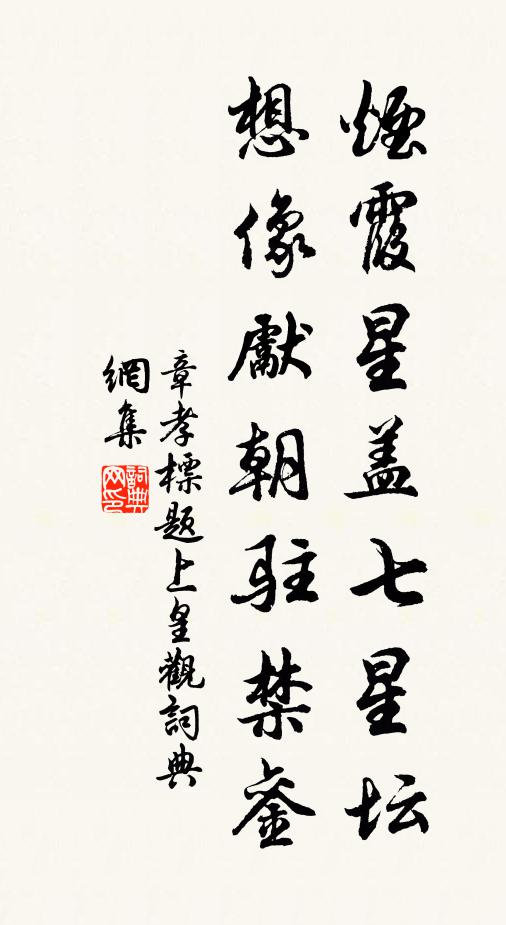 煙霞星盖七星坛
想像獻朝驻禁銮
章孝標题上皇觀詞典
網集
詞典
网印